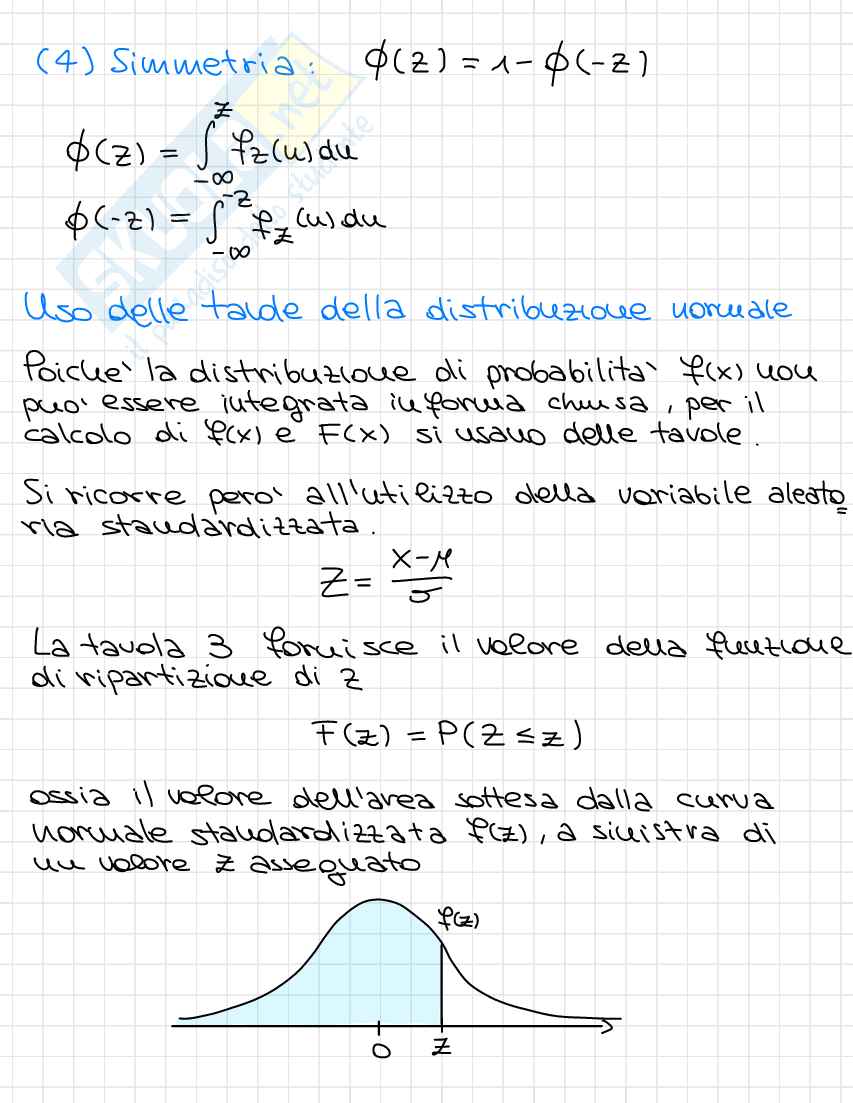 (4) Simmetria: ϕ(z) = 1 - ϕ(-z)
ϕ(z) = ∫_{-∞}^{z} f_z(u) du
ϕ(-z) = ∫_{-∞}^{-z} f_z(u) du
Uso delle tavole della distribuzione normale
Poiche' la distribuzione di probabilita' f(x) non
puo' essere integrata in forma chiusa, per il
calcolo di f(x) e F(x) si usano delle tavole.
Si ricorre pero' all'utilizzo della variabile aleato
ria standardizzata.
Z = (x-μ)/σ
La tavola 3 fornisce il valore della funzione
di ripartizione di z
F(z) = P(Z ≤ z)
ossia il valore dell'area sottesa dalla curva
normale standardizzata f(z), a sinistra di
un valore z assegnato
f(z)
0 z
SKUOLA.net